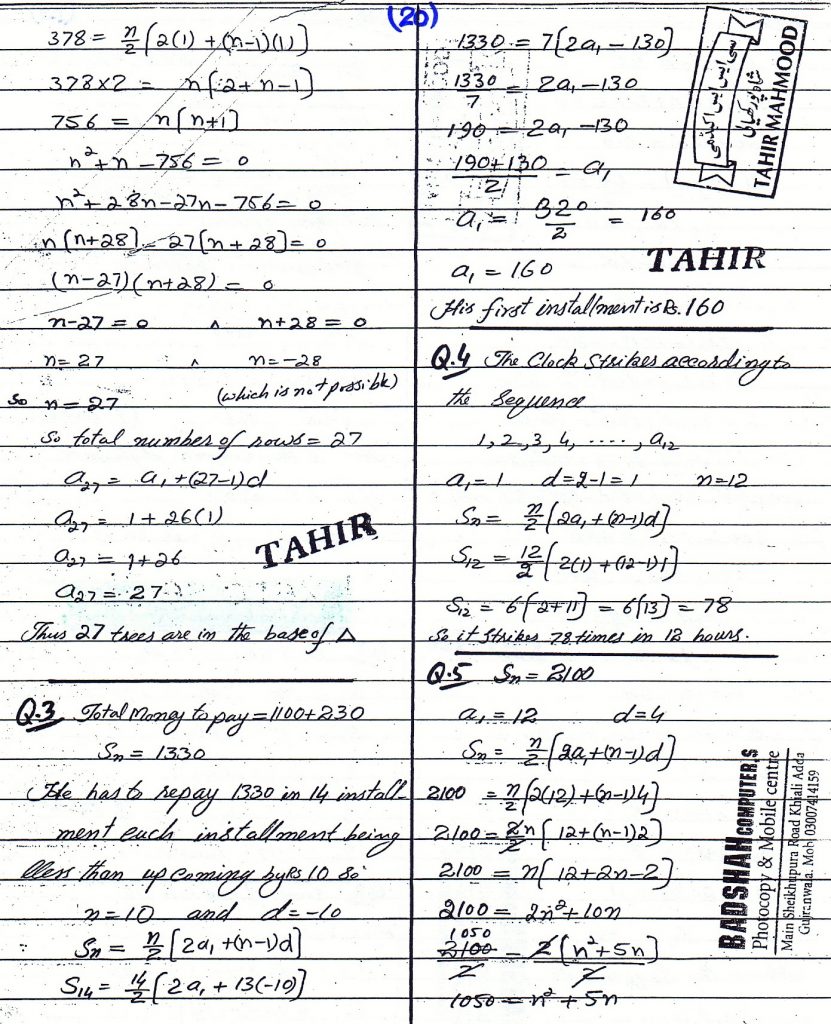 (20)
378 = n/2 [2(1) + (n-1)(1)]
378×2 = n[2+n-1]
756 = n[n+1]
n²+n-756 = 0
n²+28n-27n-756 = 0
n[n+28]-27[n+28] = 0
(n-27)(n+28) = 0
n-27 = 0 ∧ n+28 = 0
n = 27 ∧ n = -28
So n = 27 (which is not possible)
So total number of rows = 27
a₂₇ = a₁+(27-1)d
a₂₇ = 1+26(1)
a₂₇ = 1+26
a₂₇ = 27
TAHIR
Thus 27 trees are in the base of Δ
Q.3 Total Money to pay = 1100+230
Sn = 1330
He has to repay 1330 in 14 install-
ment each installment being
less than up coming by Rs 10 so
n=10 and d=-10
Sn = n/2 [2a₁+(n-1)d]
S₁₄ = 14/2 [2a₁ + 13(-10)]
1330 = 7[2a₁ - 130]
1330/7 = 2a₁-130
190 = 2a₁-130
190+130/2 = a₁
a₁ = 320/2 = 160
a₁ = 160
TAHIR
His first installment is Rs. 160
Q.4 The Clock Strikes according to
the Sequence
1, 2, 3, 4, ....., a₁₂
a₁=1 d=2-1=1 n=12
Sn = n/2 [2a₁+(n-1)d]
S₁₂ = 12/2 [2(1)+(12-1)1]
S₁₂ = 6[2+11] = 6[13] = 78
So it Strikes 78 times in 12 hours.
Q.5 Sn = 2100
a₁=12 d=4
Sn = n/2 [2a₁+(n-1)d]
2100 = n/2 [2(12)+(n-1)4]
2100 = 2n/2 [12+(n-1)2]
2100 = n[12+2n-2]
2100 = 2n²+10n
1050
2100/2 = 2[n²+5n]/2
1050 = n²+5n
سی ایس ایس اکیڈمی
TAHIR MAHMOOD
BADSHAH COMPUTER,S
Photocopy & Mobile centre
Main Sheikhupura Road Khiali Adda
Gujranwala. Mob: 03007414159